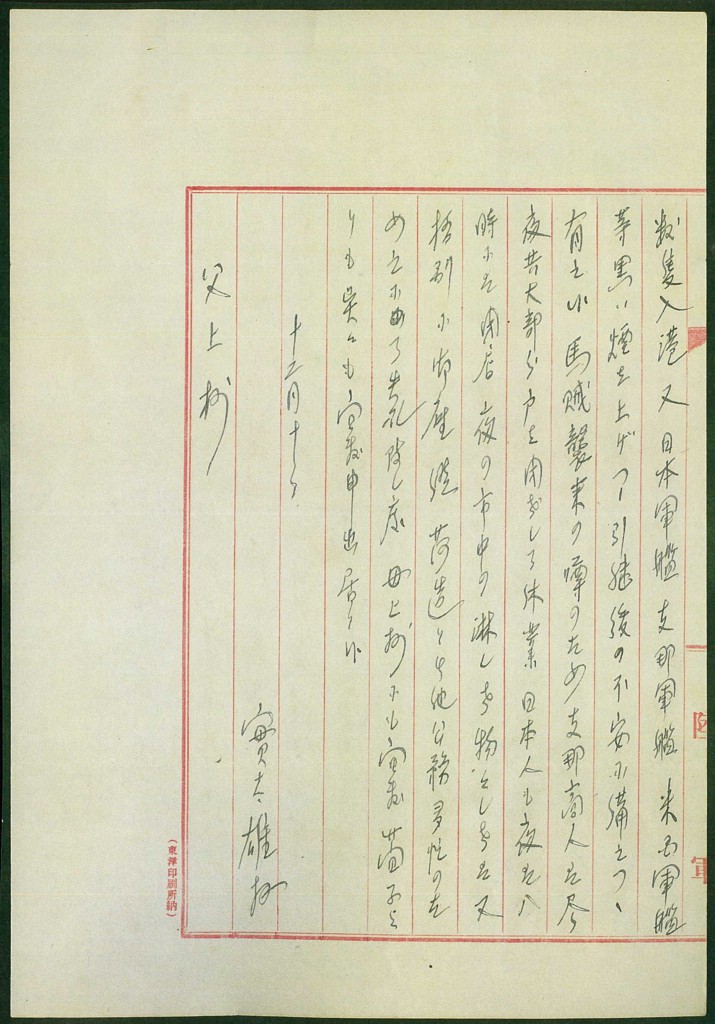 数隻入港又日本軍艦支那軍艦米国軍艦
等黒い煙を上げつゝ引継後の不安に備えつゝ
有之候 馬賊襲来の噂のため支那商人は尽
夜共大部分戸を閉ざして休業日本人も夜は八
時には閉店 夜の市中の淋しさ物とし さは又
格別に御座候 荷造りや他公務多忙のた
め 乍 失礼致し度 母上様にも宜敷
りも呉々も宜敷申出居り候
十二月十日
實太雄拝
父上様
陸軍
(東洋印刷所納)